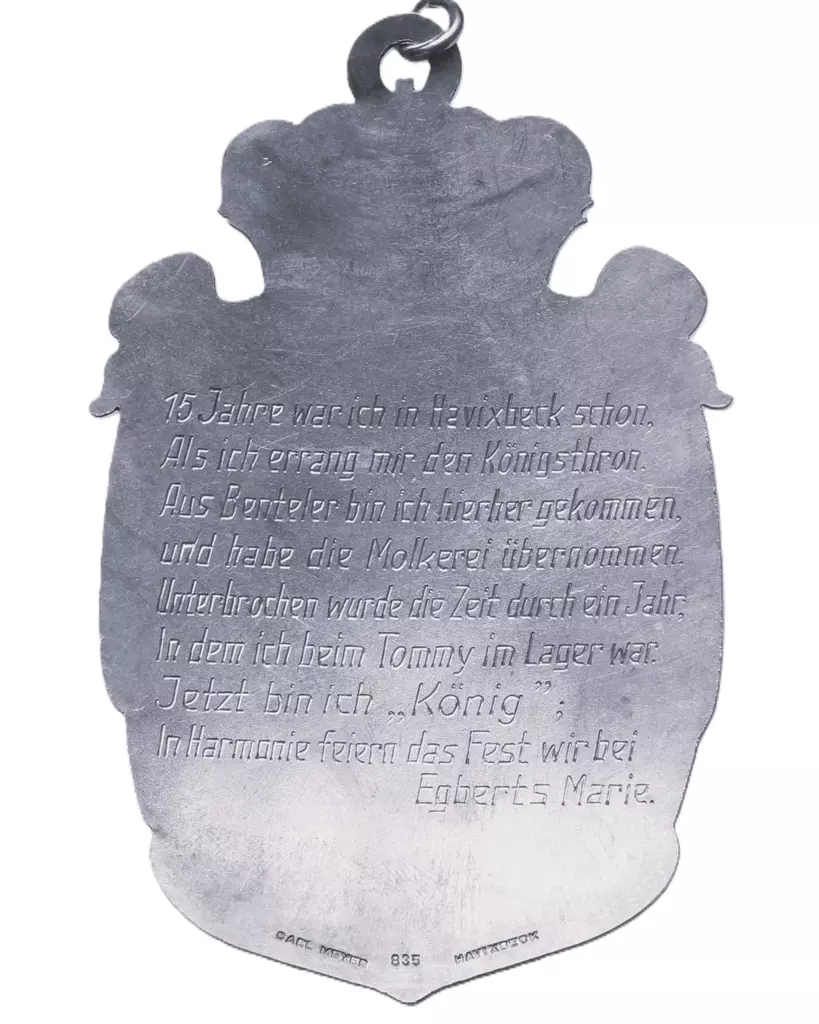 15 Jahre war ich in Havixbeck schon,
Als ich errang mir den Königsthron.
Aus Benteler bin ich hierher gekommen,
und habe die Molkerei übernommen.
Unterbrochen wurde die Zeit durch ein Jahr,
In dem ich beim Tommy im Lager war.
Jetzt bin ich „König”;
In Harmonie feiern das Fest wir bei
Egberts Marie.
CARL MEYER 835 HAVIXBECK